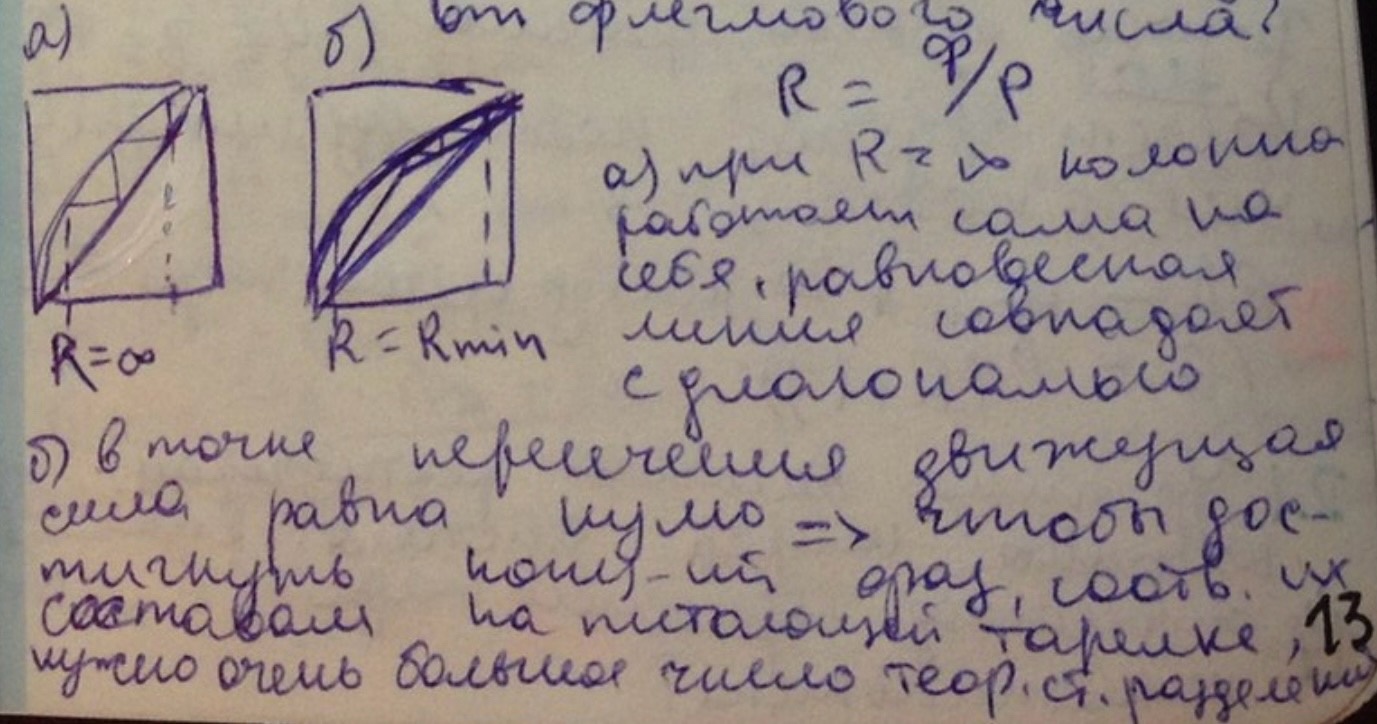 а) б) вт флегмового числа?
R = Ф/P
а) при R = ∞ колонна
работает сама на
себя, равновесная
линия совпадает
с диагональю
R=∞ R = Rmin
б) в точке пересичения движущая
сила равна нулю => чтобы дос-
тигнуть конц-ий фаз, соотв. их
составам на питающей тарелке, 13
нужно очень большое число теор. ст. разделения